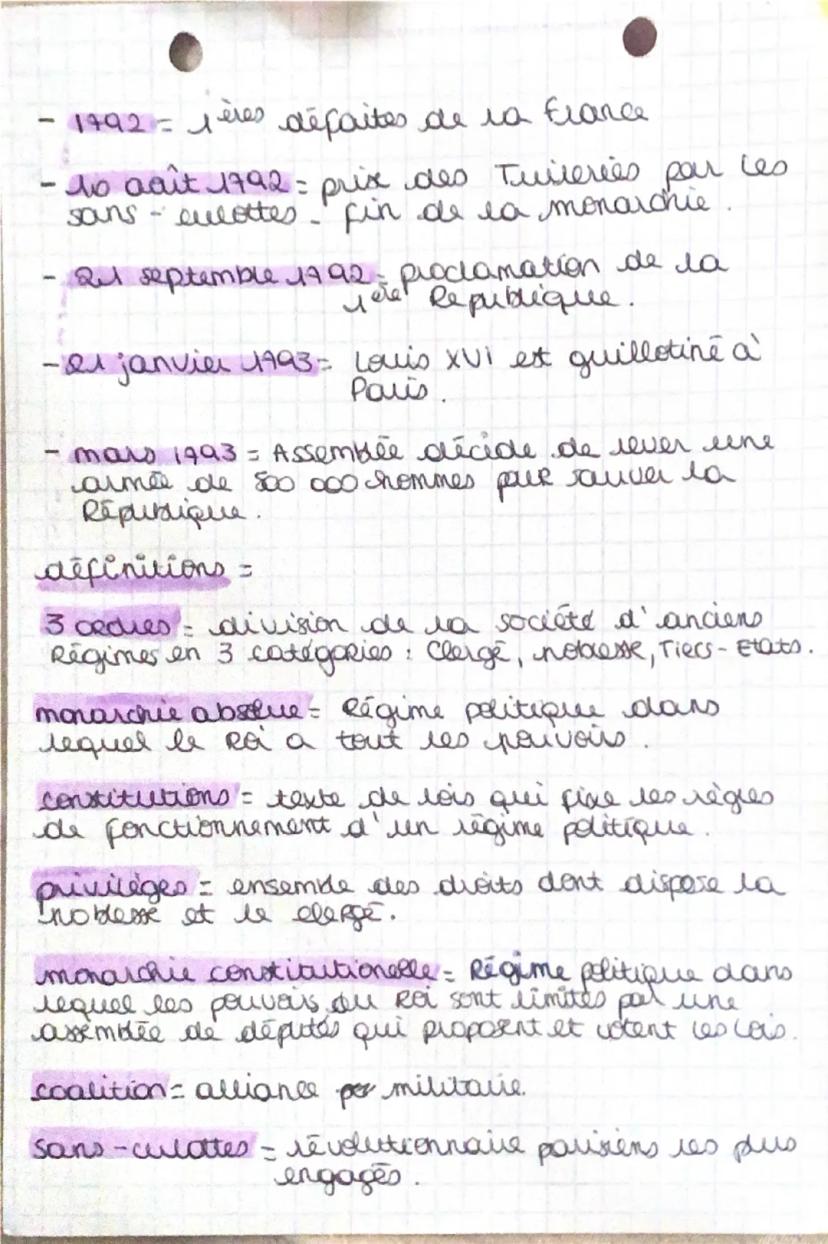 - 1792 = 1ères défaites de la France
- 10 août 1792 = prise des Tuileries par les
sans-culottes - fin de la monarchie.
- 21 septembre 1792 = proclamation de la
1ère République.
- 21 janvier 1793 = Louis XVI est guillotiné à
Paris.
- mars 1793 = Assemblée décide de lever une
armée de 300 000 hommes pour sauver la
République.
définitions =
3 ordres = division de la société d'anciens
Régimes en 3 catégories : Clergé, noblesse, Tiers-Etats.
monarchie absolue = Régime politique dans
lequel le Roi a tout les pouvoirs.
constitutions = texte de lois qui fixe les règles
de fonctionnement d'un régime politique.
privilèges = ensemble des droits dont dispose la
noblesse et le clergé.
monarchie constitutionelle = Régime politique dans
lequel les pouvoirs du Roi sont limités par une
assemblée de députés qui proposent et votent les lois.
coalition = alliance militaire
sans-culottes = révolutionnaire parisiens les plus
engagés.